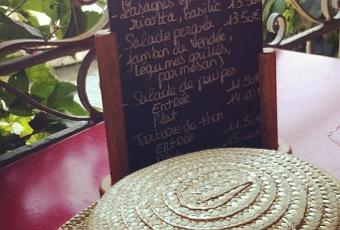 - Lasagnes
ricotta, basilic 13.50€
- Salade pergola
(jambon de Vendée,
légumes grillés,
parmesan)
- Salade de poulpes
Entrée 11.50€
Plat
- Tartare de thon
Entrée 11.50€